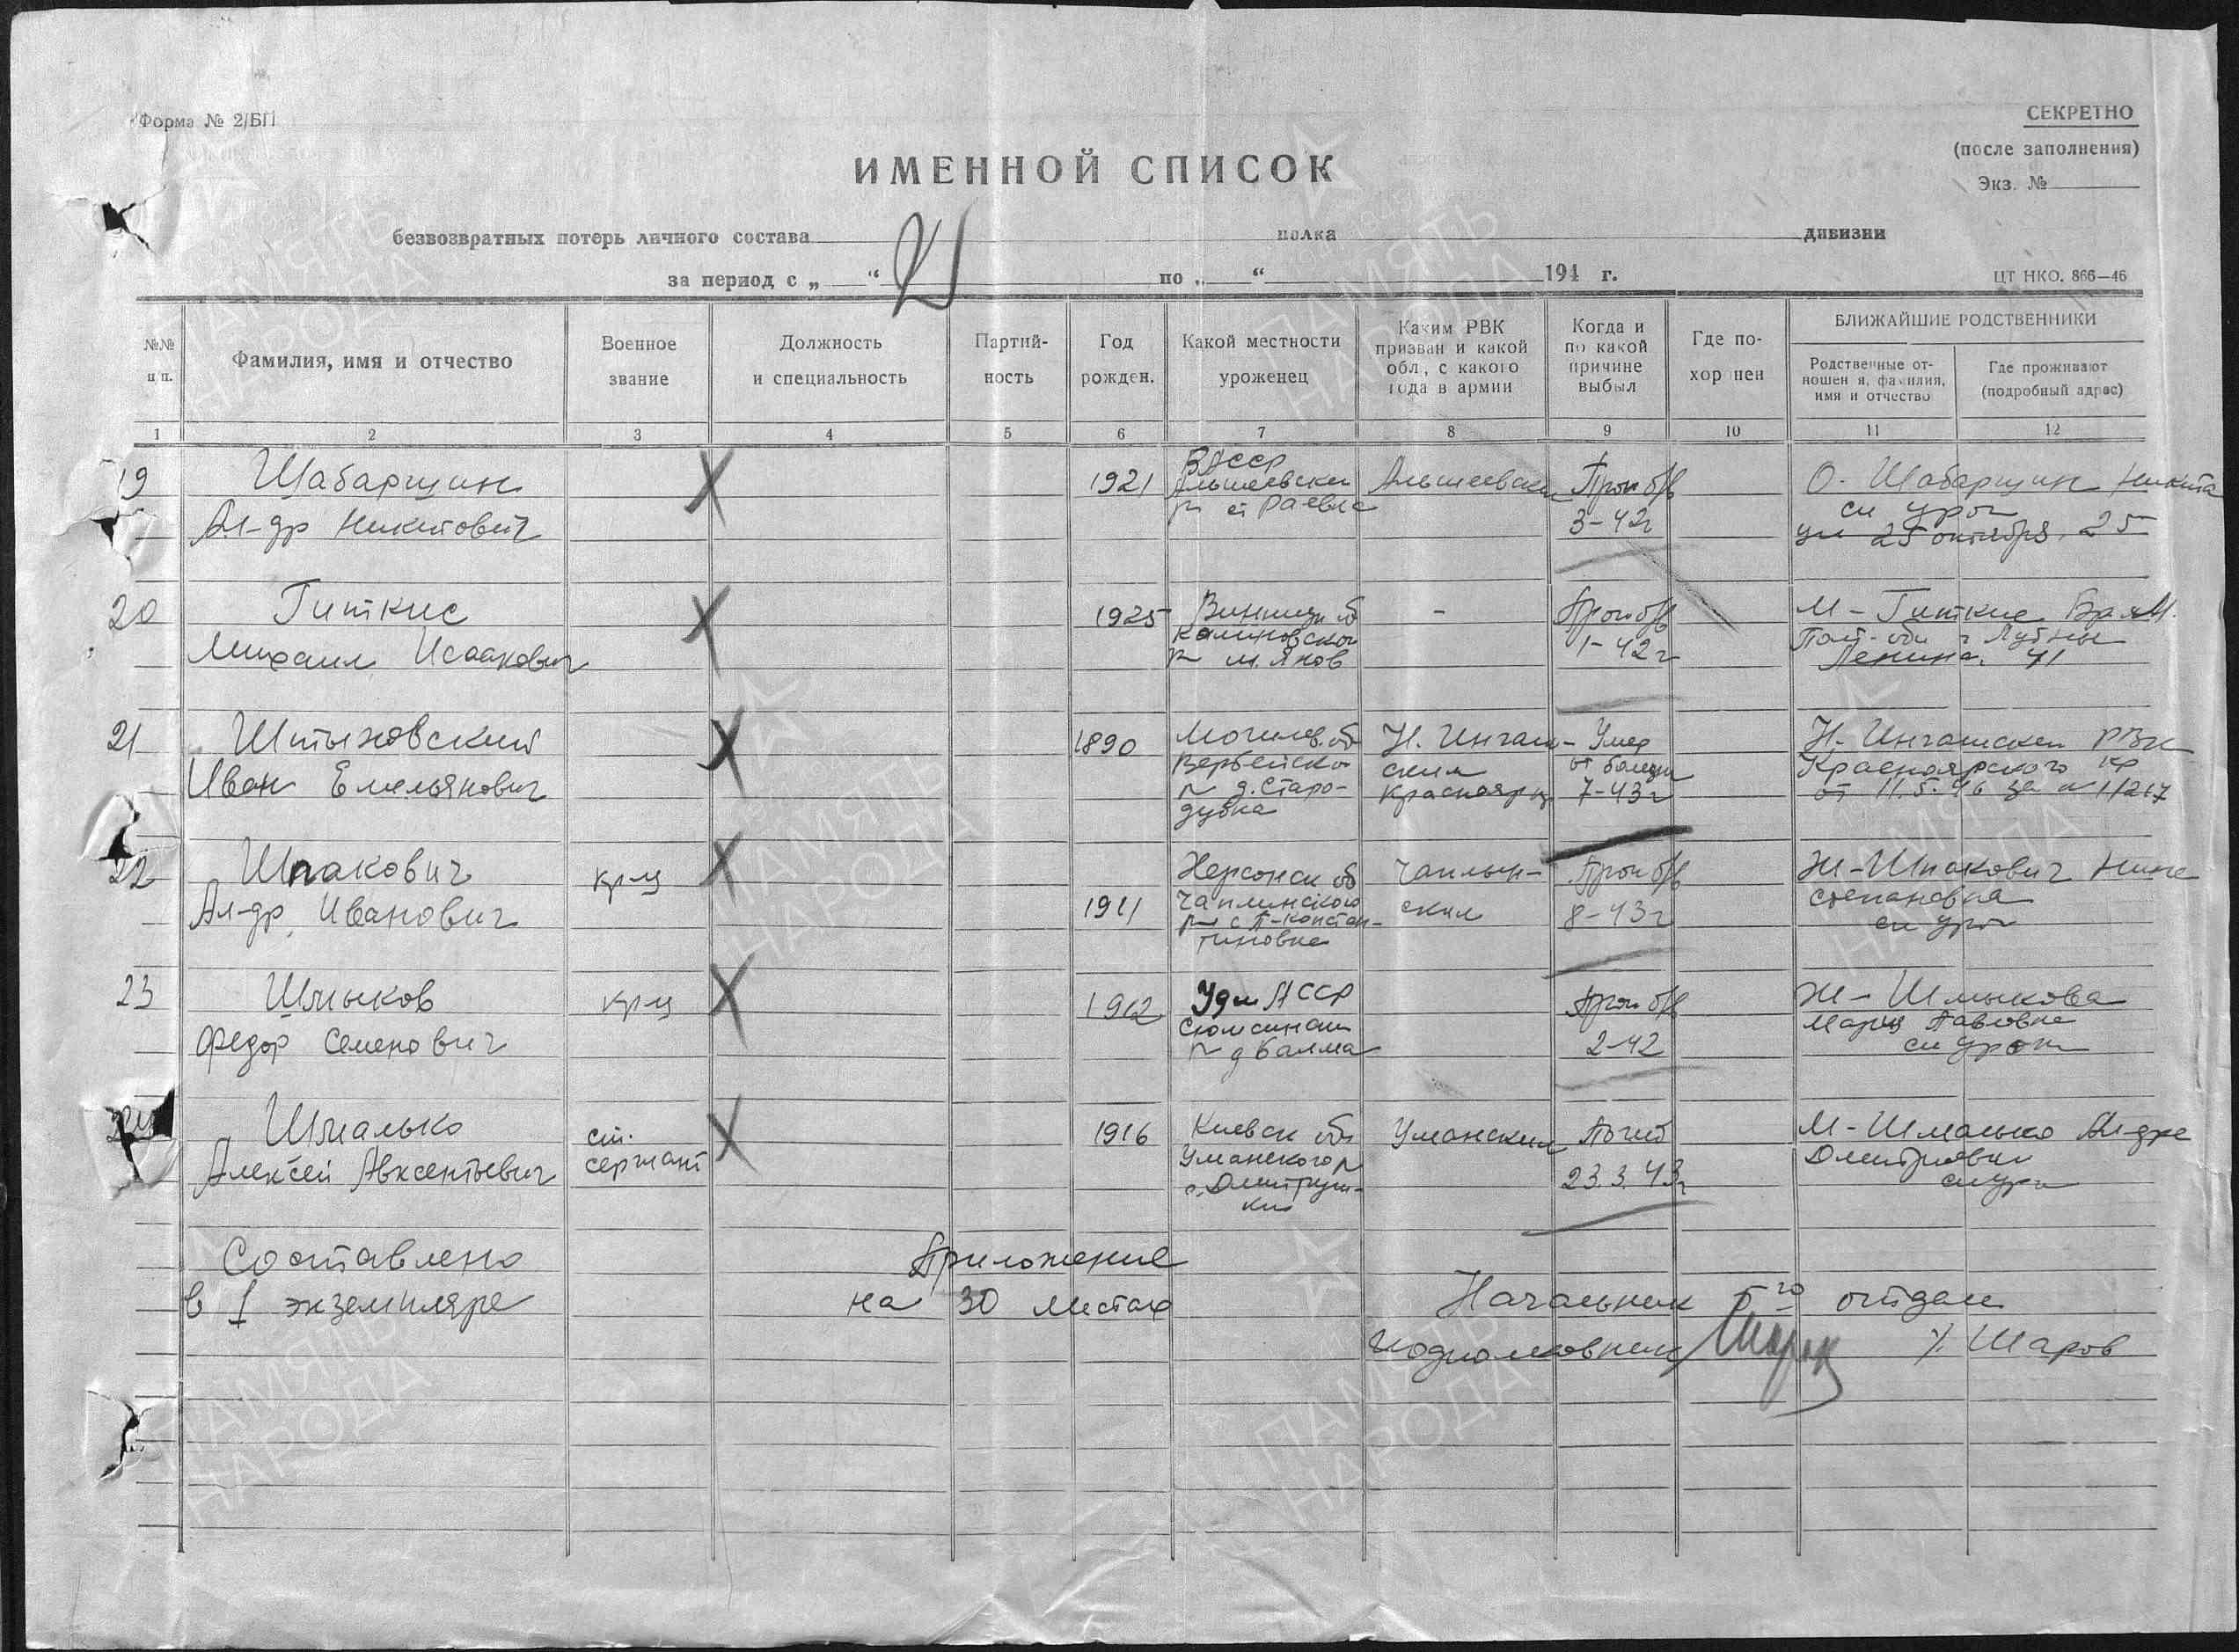 Форма № 2/БП
СЕКРЕТНО
(после заполнения)
Экз. №
ИМЕННОЙ СПИСОК
безвозвратных потерь личного состава полка дивизии
за период с „ “ по „ “ 194 г.
ЦТ НКО. 866—46
№№ п п.
Фамилия, имя и отчество
Военное звание
Должность и специальность
Партий- ность
Год рожден.
Какой местности уроженец
Каким РВК призван и какой обл., с какого года в армии
Когда и по какой причине выбыл
Где по- хор нен
БЛИЖАЙШИЕ РОДСТВЕННИКИ
Родственные от- ношен я, фамилия, имя и отчество
Где проживают (подробный адрес)
1 2 3 4 5 6 7 8 9 10 11 12
19 Шабарщин 1921 Альшеевски Проп б/в О. Шабарщин Никита
Ал-др Никитович р ст Раевка 3-42г
ул 25 октября, 25
20 Гиткис 1925 Винницк об - Проп б/в М - Гиткис
Михаил Исаакович Калиновского 1-42г
р м. Янов Ленина, 41
21 Штыховский 1890 Могилев. об Н. Ингаш- Умер Н. Ингашский РВК
Иван Емельянович ский от болезни Красноярского кр
р д. Старо- Красноярц 7-43г от 11.5.46 за № 1/217
дубка
22 Шпакович кр-ц Херсонск об Чаплын- Проп б/в Ж - Шпакович Нина
Ал-др Иванович 1911 Чаплинского ский 8-43г Степановна
р с П-Констан-
тиновка
23 Шмыков кр-ц 1912 Удм АССР Проп б/в Ж - Шмыкова
Федор Семенович р д Балма 2-42 Мария Павловна
24 Шмалько ст. 1916 Киевск об Уманский Погиб М - Шмалько Ал-дра
Алексей Авксентьевич сержант Уманского р 23.3.43г Дмитриевна
с. Дмитруш-
ки
Составлено Приложение
в 1 экземпляре на 30 листах Начальник 5го отдела
подполковник /Шаров
ПАМЯТЬ
НАРОДА